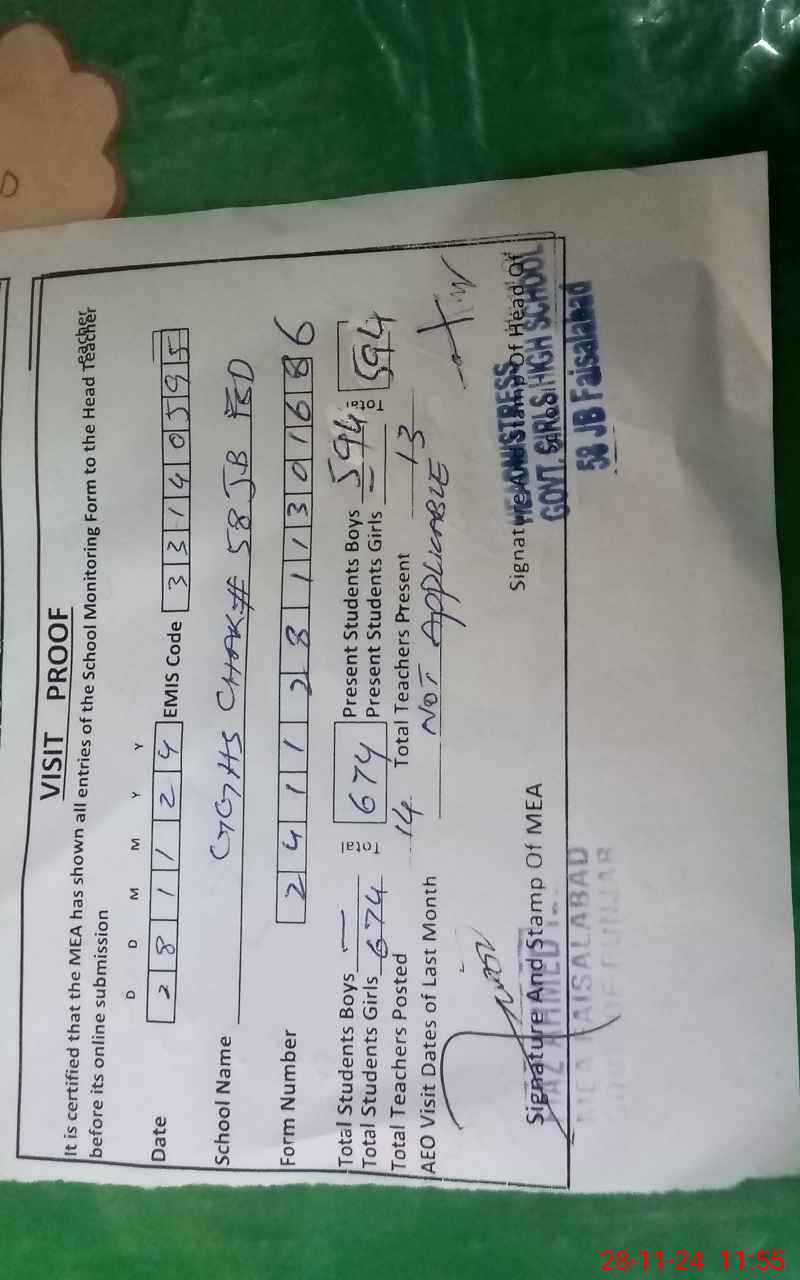 VISIT PROOF
It is certified that the MEA has shown all entries of the School Monitoring Form to the Head Teacher
before its online submission
D D M M Y Y
Date 2 8 1 1 2 4 EMIS Code 3 3 1 4 0 5 9 5
School Name GGHS CHAK# 58 JB FSD
Form Number 2 4 1 1 2 8 1 1 3 0 1 6 8 6
Total Students Boys — Total 674 Present Students Boys 594 Total 594
Total Students Girls 674 Present Students Girls —
Total Teachers Posted 14 Total Teachers Present 13
AEO Visit Dates of Last Month NOT APPLICABLE
Signature And Stamp Of MEA
Signature And Stamp Of Head Of
School
HEADMISTRESS
GOVT. GIRLS HIGH SCHOOL
58 JB Faisalabad
MEA FAISALABAD
28-11-24 11:55